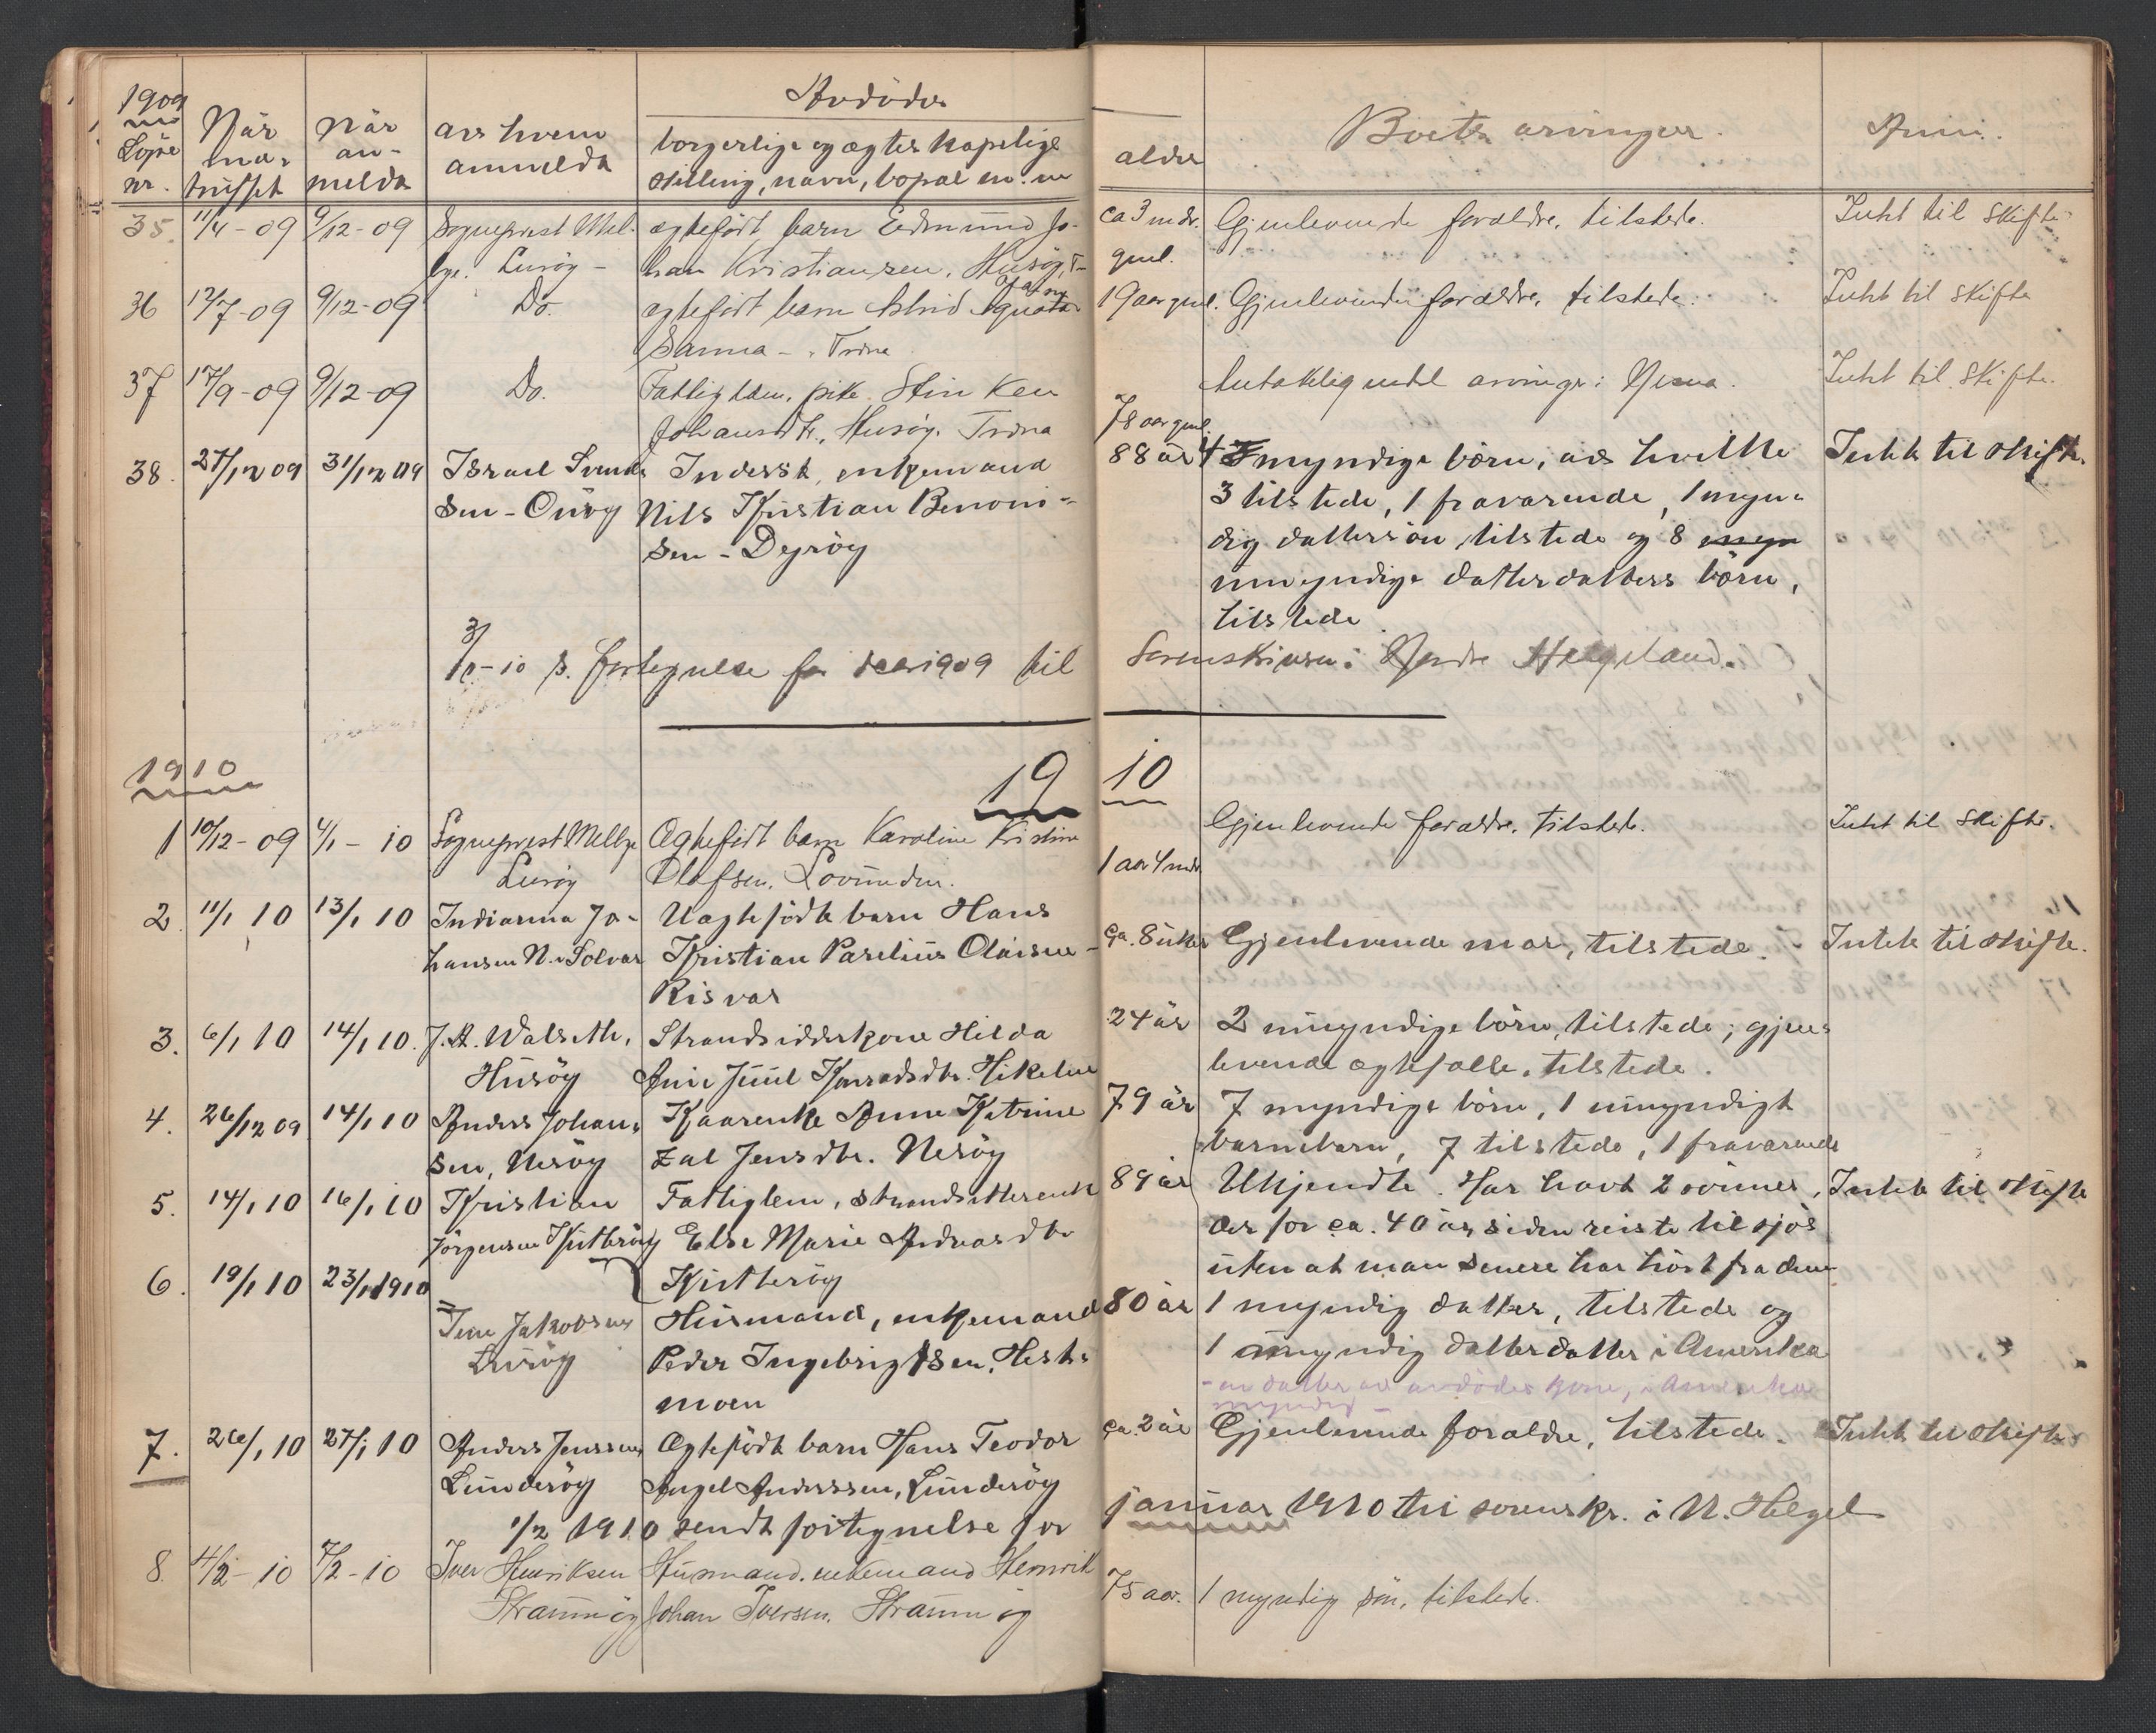 1909
Löpe nr.
Når ind-truffet
Når an-meldt
av hvem anmeldt
Avdödes
borgerlige og ægteskapelige
stilling, navn, bopæl m. m.
alder
Boets arvinger.
Anm.
35. 11/4-09 9/12-09 Sogneprest Mel- ægtefödt barn Edmund Jo- ca 3 mdr. Gjenlevende forældre, tilstede. Intet til skifte
bye. Luröy - han Kristiansen, Husöy, T- gml.
36 12/7-09 9/12-09 Do. ægtefödt barn Astrid 19 aar gml. Gjenlevende forældre, tilstede. Intet til skifte
Sanna - Træna
37 17/9-09 9/12-09 Do. Fattiglem, pike Stinken Antakelig endel arvinger i Nesna. Intet til skifte.
Johansdtr., Husöy. Træna 78 aar gml.
38. 27/12 09 31/12 09 Israel Svend- Inderst, enkemand 88 år 4 myndige börn, av hvilke Intet til skifte.
sen - Onöy Nils Kristian Benoni- 3 tilstede, 1 fraværende, 1 myn-
sen - Deröy dig dattersön, tilstede og 8 myn
umyndige datterdatters börn,
tilstede.
3/1 - 10 s. fortegnelse for decbr 1909 til Sorenskriveren i Nordre Helgeland.
1910
19 10
1 10/12-09 4/1-10 Sogneprest Melbye Ægtefödt barn Karoline Kristine Gjenlevende forældre, tilstede. Intet til skifte.
Luröy Olafsen, Lovunden. 1 aar 4 mdr
2. 11/1 10 13/1 10 Indianna Jo- Uægtefödt barn Hans ca. 8 uker Gjenlevende mor, tilstede. Intet til skifte.
hansen N. Solvær Kristian Parelius Olaisen -
Risvær
3. 6/1 10 14/1 10. J. A. Walseth, Strandsidderkone Hilda 24 år 2 umyndige börn, tilstede; gjen-
Husöy Anie Juul Konradsdtr. Hikelen levende ægtefælle, tilstede.
4. 26/12 09 14/1 10 Anders Johan- Kaarenke Anne Katrine 79 år 7 myndige börn, 1 umyndigt
sen, Nesöy Zal Jensdtr. Nesöy barnebarn, 7 tilstede, 1 fraværende
5. 14/1 10 16/1 10 Kristian Fattiglem, strandsitterenke 89 år Ukjendte. Har havt 2 sönner, Intet til skifte
Jörgensen Kvitteröy Else Marie Andreasdtr. der for ca. 40 år siden reiste til sjös
Kvitteröy uten at man senere har hört fra dem
6. 19/1 10 23/1 1910 Jens Jakobsen Husmand, enkemand 80 år 1 myndig datter, tilstede og
Luröy Peder Ingebrigtsen, Hest- 1 myndig datterdatter i Amerika
moen - en datter av avdödes kone, i Amerika
myndig -
7. 26/1 10 27/1 10 Anders Jenssen Ægtefödt barn Hans Teodor ca. 2 år Gjenlevende forældre, tilstede. Intet til skifte
Lunderöy Angel Anderssen, Lunderöy
1/2 1910 sendt fortegnelse for januar 1910 til sorenskr. i N. Helgel
8. 4/2-10 7/2-10 Iver Henriksen Husmand, enkemand Henrik 75 aar. 1 myndig sön, tilstede.
Straumöy Johan Iversen. Straumöy